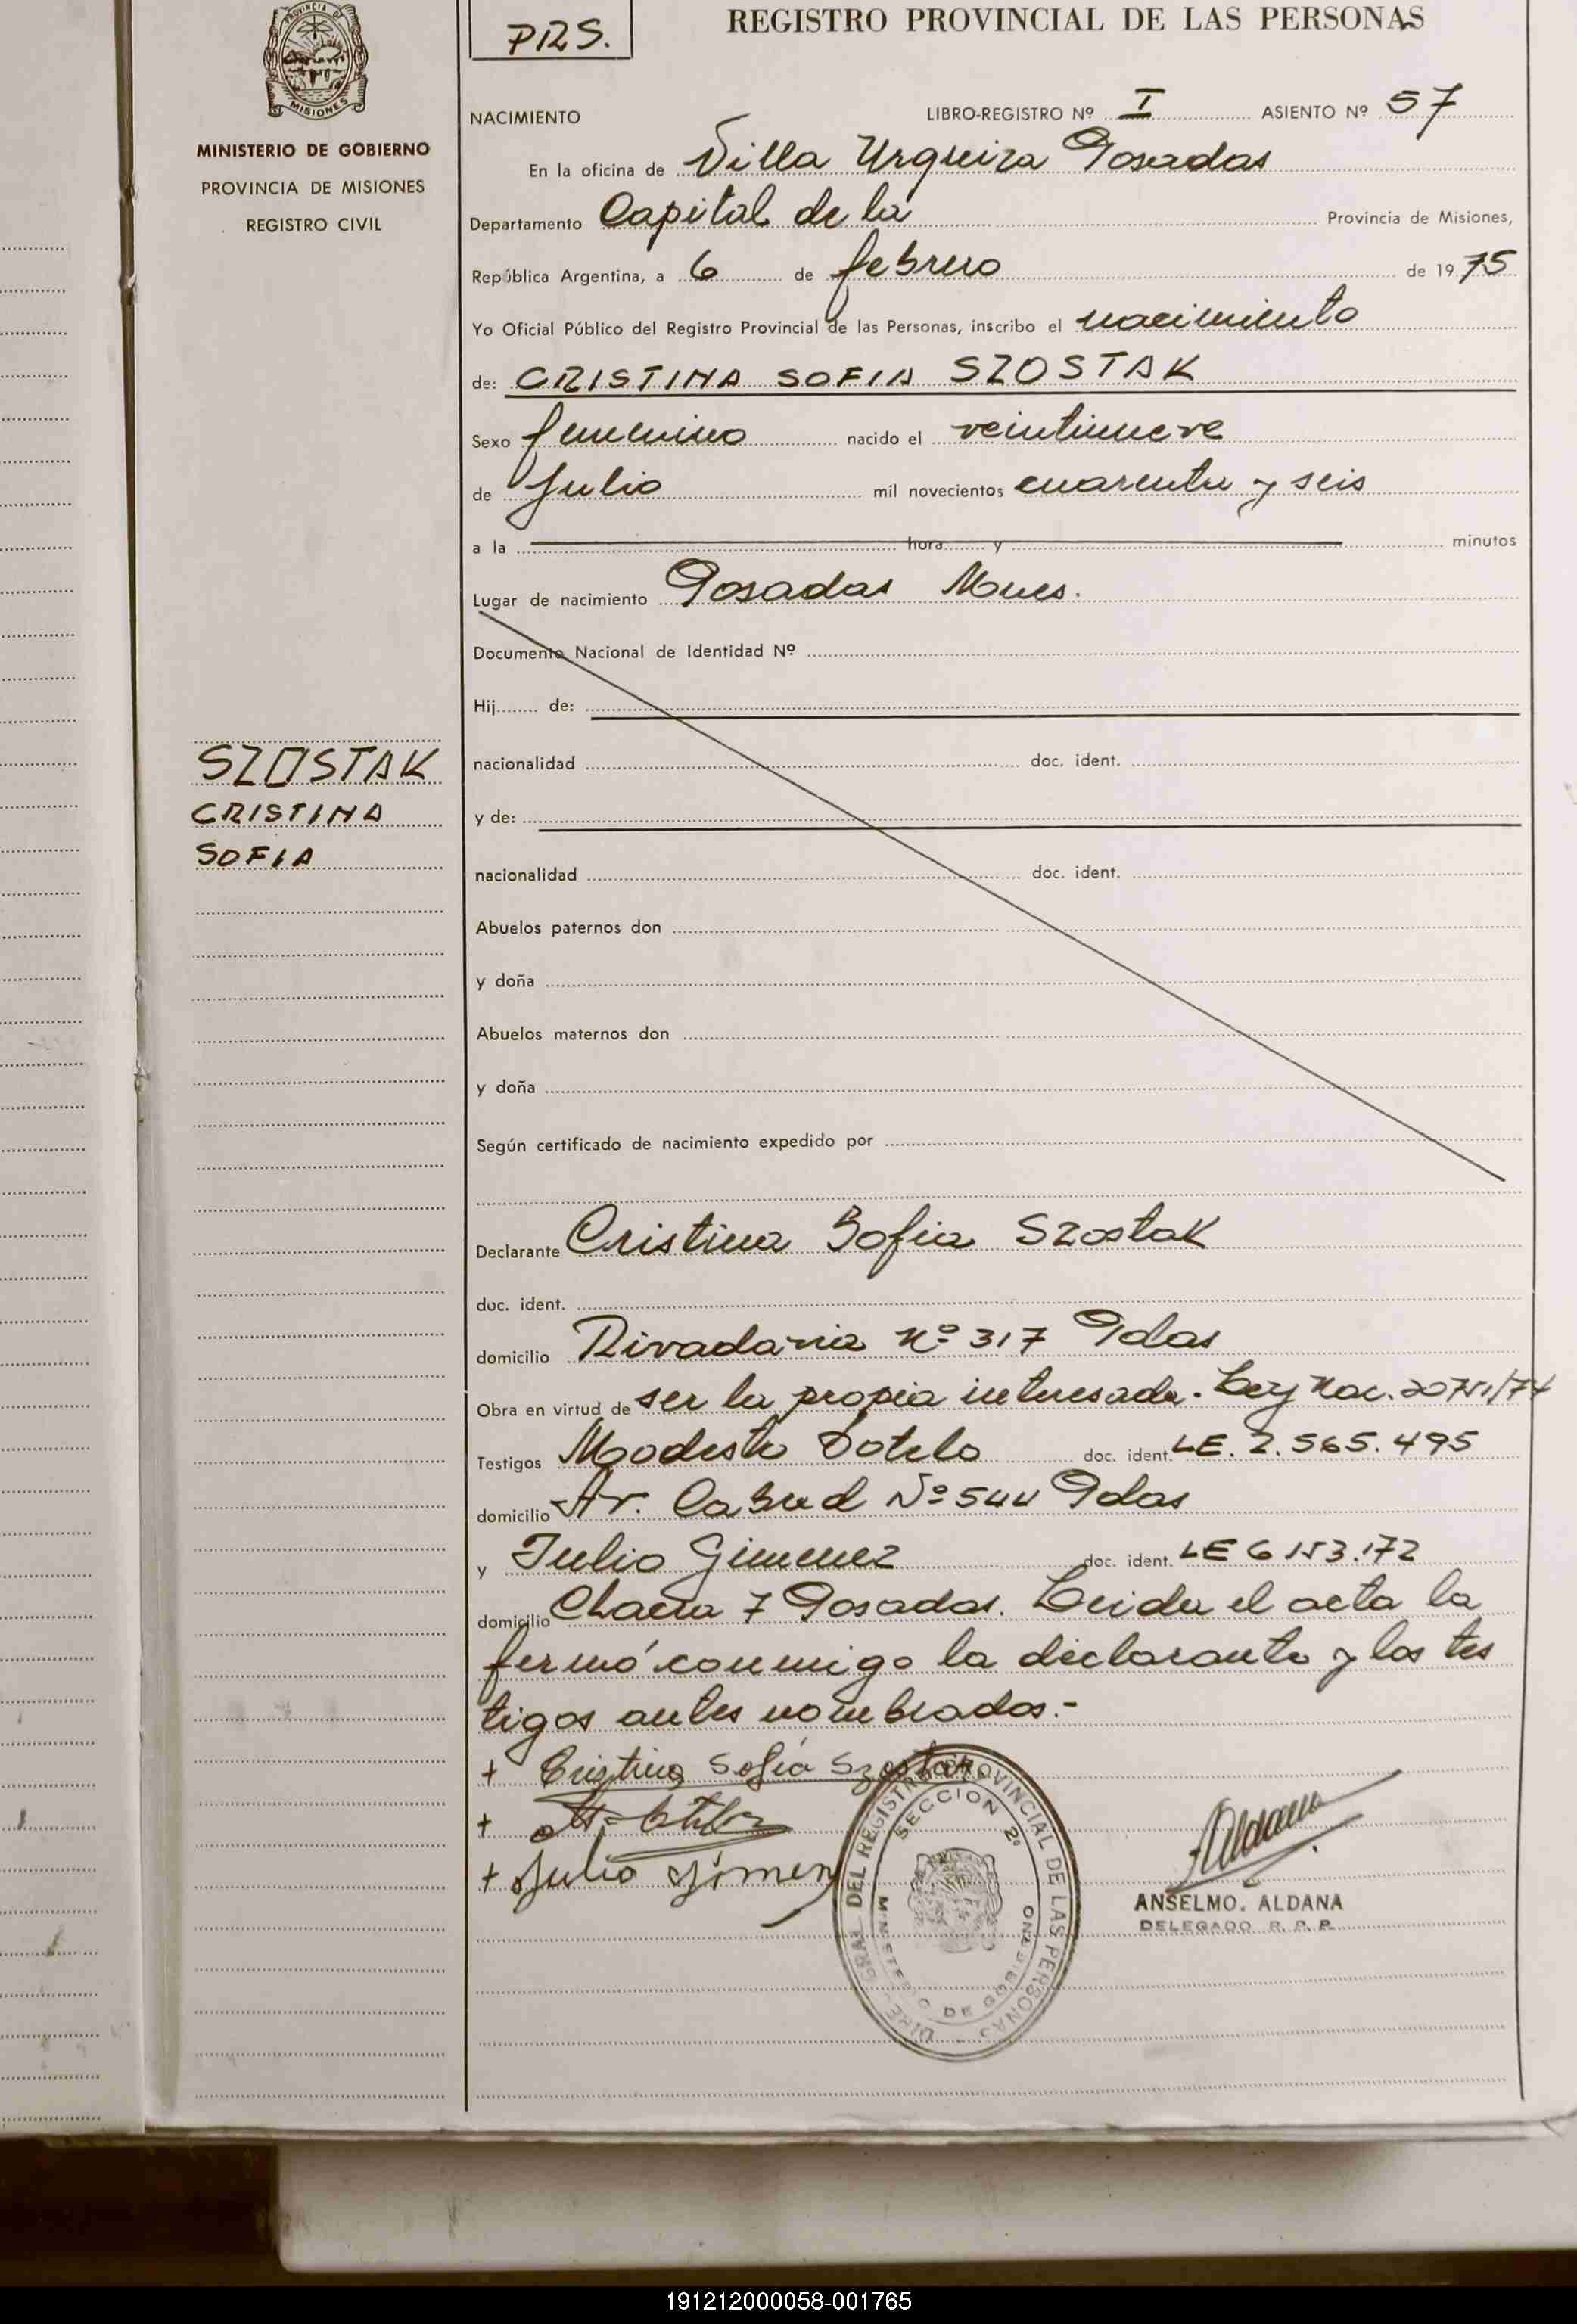 PROVINCIA DE
MISIONES
MINISTERIO DE GOBIERNO
PROVINCIA DE MISIONES
REGISTRO CIVIL
SZOSTAK
CRISTINA
SOFIA
PRS.
REGISTRO PROVINCIAL DE LAS PERSONAS
NACIMIENTO LIBRO-REGISTRO Nº I ASIENTO Nº 57
En la oficina de Villa Urquiza Posadas
Departamento Capital de la Provincia de Misiones,
República Argentina, a 6 de febrero de 1975
Yo Oficial Público del Registro Provincial de las Personas, inscribo el nacimiento
de: CRISTINA SOFIA SZOSTAK
Sexo femenino nacido el veintinueve
de Julio mil novecientos cuarenta y seis
a la hora y minutos
Lugar de nacimiento Posadas Mnes.
Documento Nacional de Identidad Nº
Hij de:
nacionalidad doc. ident.
y de:
nacionalidad doc. ident.
Abuelos paternos don
y doña
Abuelos maternos don
y doña
Según certificado de nacimiento expedido por
Declarante Cristina Sofia Szostak
doc. ident.
domicilio Rivadavia Nº 317 Pdas
Obra en virtud de ser la propia interesada. Ley Nac. 20751/74
Testigos Modesto Sotelo doc. ident. LE. 2.565.495
domicilio Av. Cabred Nº 544 Pdas
y Julio Gimenez doc. ident. LE 6153.172
domicilio Chacra 7 Posadas. Leida el acta la
firmó conmigo la declarante y los tes
tigos antes nombrados.-
+ Cristina Sofía Szostak
+
+ Julio Jimenez
DIRE GRAL DEL REGISTRO PROVINCIAL DE LAS PERSONAS
SECCION 2º
MINISTERIO DE GOBIERNO
Aldana
ANSELMO. ALDANA
DELEGADO R. P. P.
191212000058-001765